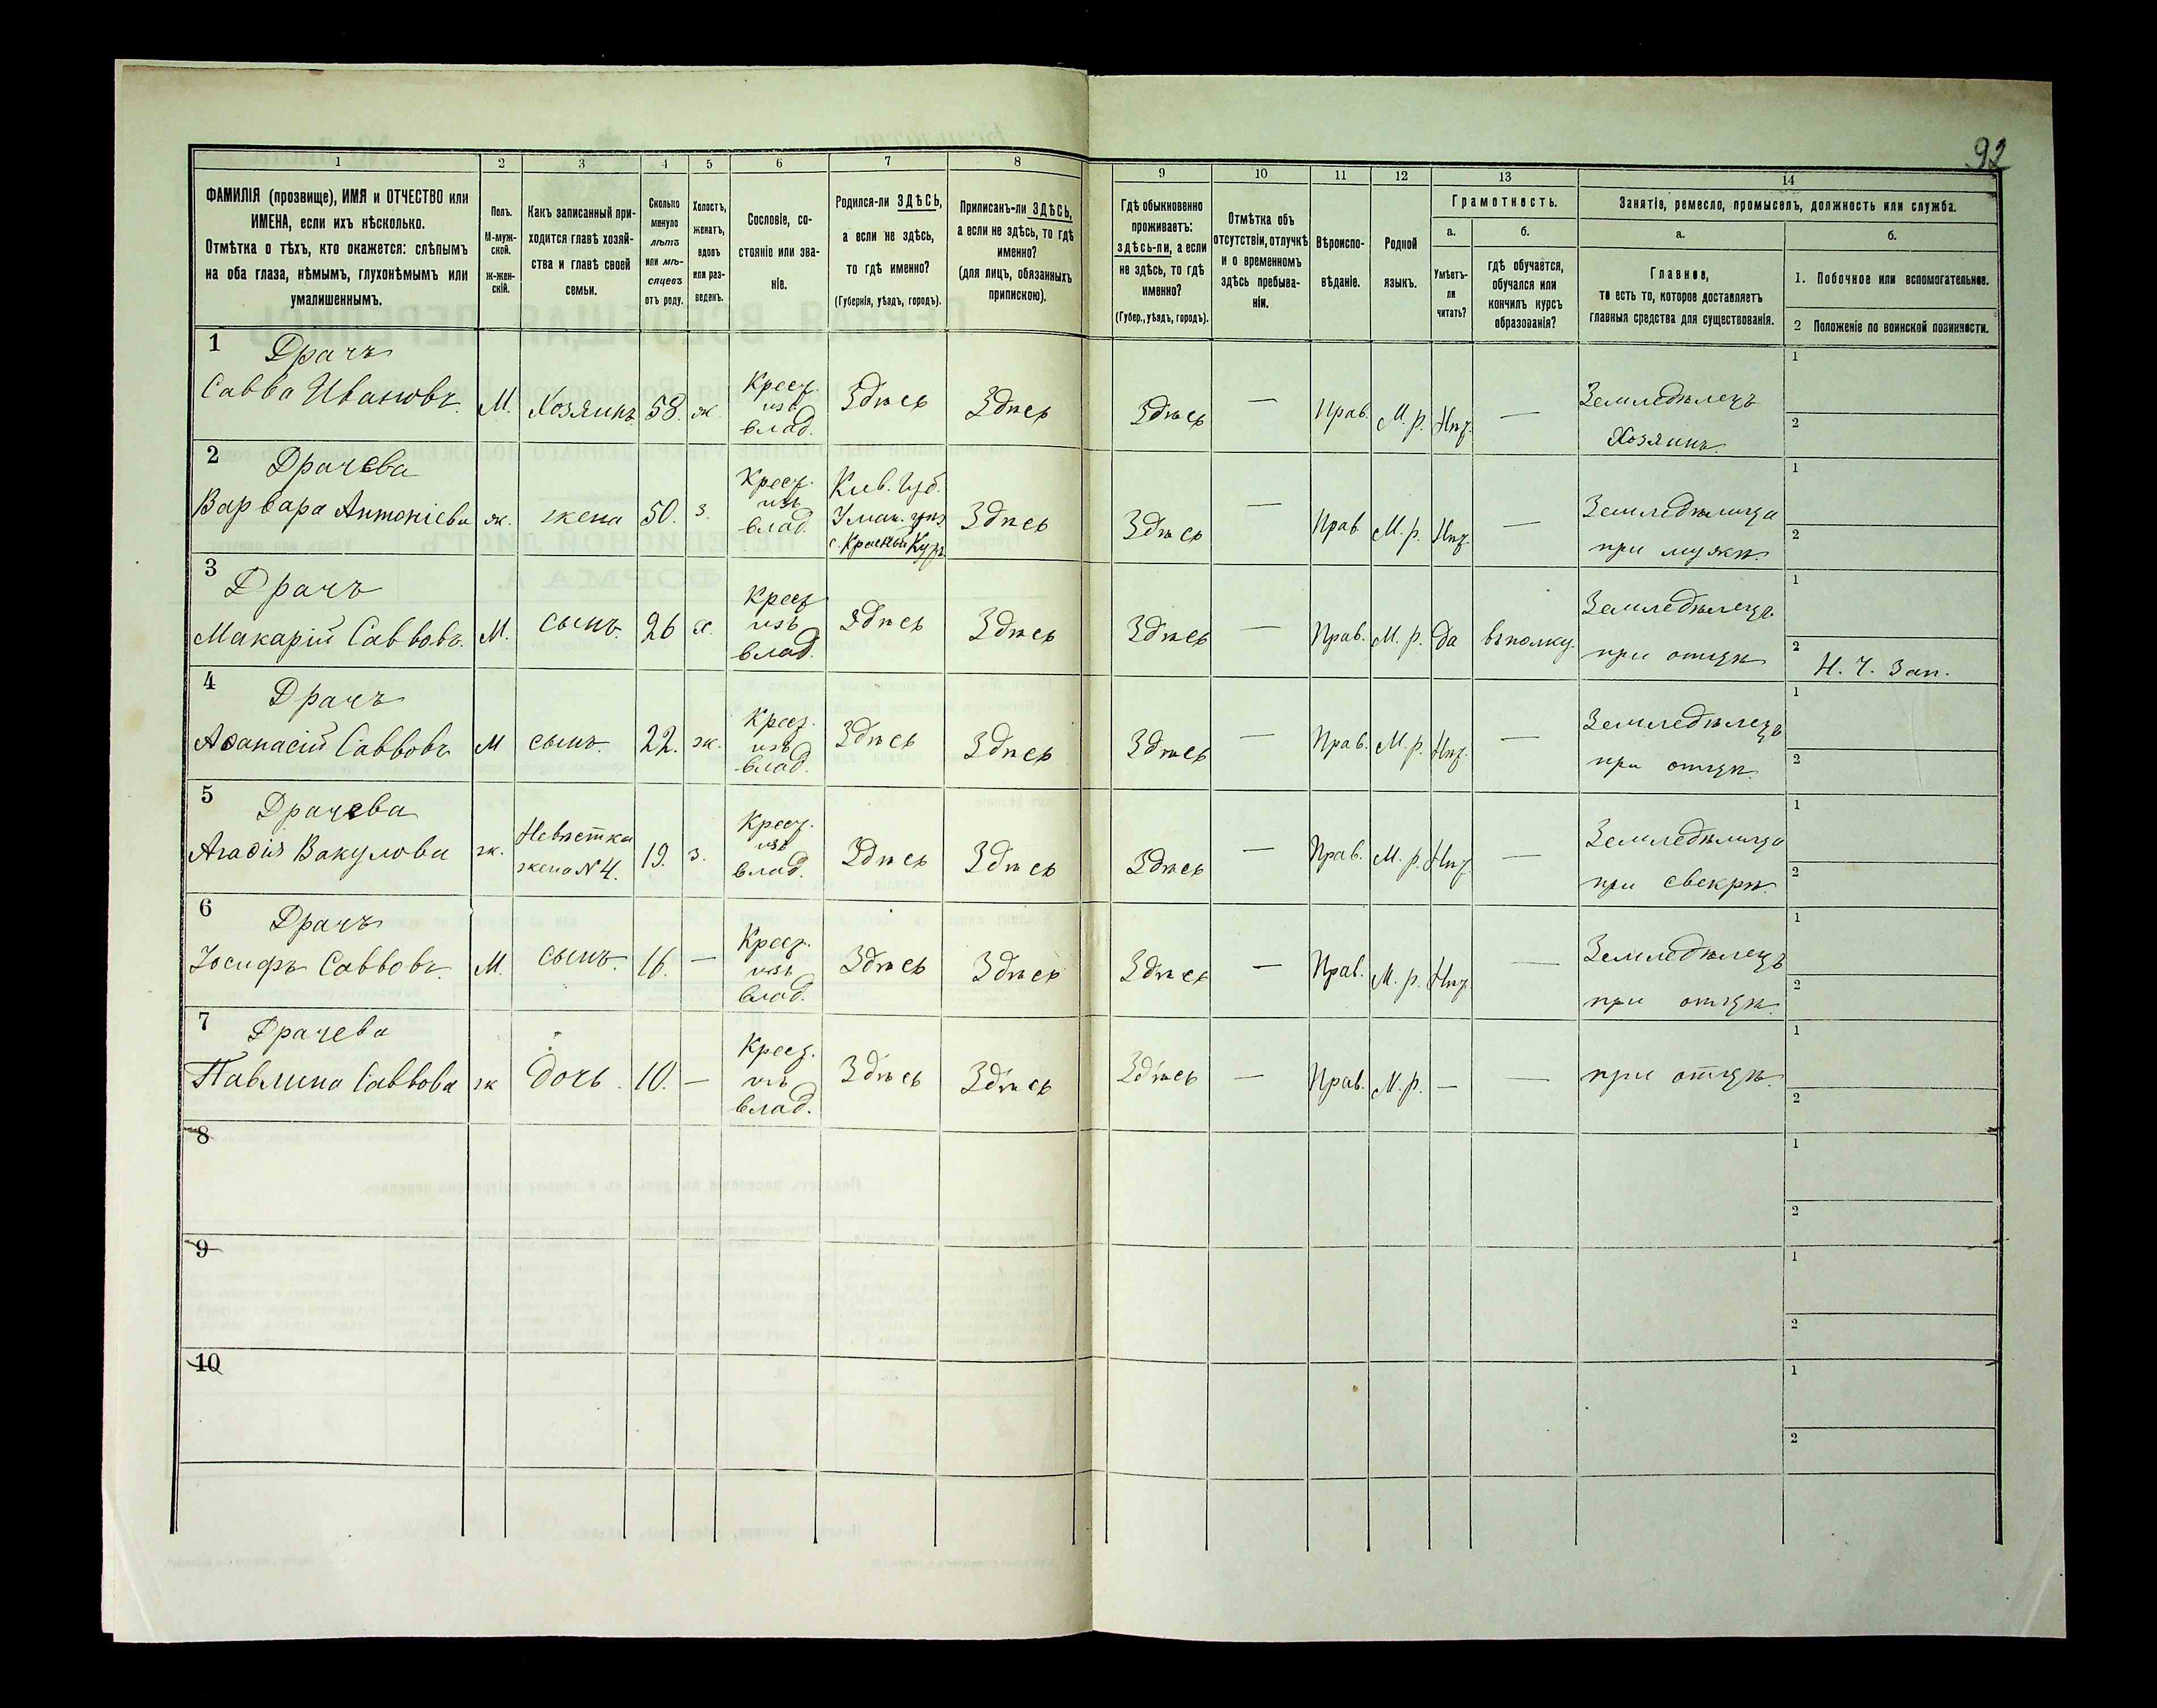 92
1 2 3 4 5 6 7 8 9 10 11 12 13 14
ФАМИЛІЯ (прозвище), ИМЯ и ОТЧЕСТВО или
ИМЕНА, если ихъ нѣсколько.
Отмѣтка о тѣхъ, кто окажется: слѣпымъ
на оба глаза, нѣмымъ, глухонѣмымъ или
умалишеннымъ.
Полъ.
М-муж-
ской.
Ж-жен-
скій.
Какъ записанный при-
ходится главѣ хозяй-
ства и главѣ своей
семьи.
Сколько
минуло
лѣтъ
или мѣ-
сяцевъ
отъ роду.
Холостъ,
женатъ,
вдовъ
или раз-
веденъ.
Сословіе, со-
стояніе или зва-
ніе.
Родился-ли ЗДѢСЬ,
а если не здѣсь,
то гдѣ именно?
(Губернія, уѣздъ, городъ).
Приписанъ-ли ЗДѢСЬ,
а если не здѣсь, то гдѣ
именно?
(для лицъ, обязанныхъ
припискою).
Гдѣ обыкновенно
проживаетъ:
здѣсь-ли, а если
не здѣсь, то гдѣ
именно?
(Губер., уѣздъ, городъ).
Отмѣтка объ
отсутствіи, отлучкѣ
и о временномъ
здѣсь пребыва-
ніи.
Вѣроиспо-
вѣданіе.
Родной
языкъ.
Грамотность.
а.
Умѣетъ-
ли
читать?
б.
гдѣ обучается,
обучался или
кончилъ курсъ
образованія?
Занятіе, ремесло, промыселъ, должность или служба.
а.
Главное,
то есть то, которое доставляетъ
главныя средства для существованія.
б.
1. Побочное или вспомогательное.
2 Положеніе по воинской повинности.
1 Драчъ
Савва Ивановъ. М. Хозяинъ. 58. ж. Крест. изъ влад. Здѣсь Здѣсь Здѣсь — Прав. М. р. Нѣт. — Земледѣлецъ
Хозяинъ.
1
2
2 Драчева
Варвара Антоніева ж. жена 50. з. Крест. изъ влад. Кіев. губ.
Уман. уѣз.
с. Красный Кут. Здѣсь Здѣсь — Прав М. р. Нѣт. — Земледѣлица
при мужѣ.
1
2
3 Драчъ
Макарій Саввовъ. М. сынъ. 26 х. Крест изъ влад. Здѣсь Здѣсь Здѣсь — Прав. М. р. Да въ полку. Земледѣлецъ
при отцѣ
1
2 Н. Ч. Зап.
4 Драчъ
Аѳанасій Саввовъ М сынъ. 22. ж. Крест. изъ влад. Здѣсь Здѣсь Здѣсь — Прав. М. р. Нѣт. — Земледѣлецъ
при отцѣ.
1
2
5 Драчева
Агаѳія Вакулова ж. Невѣстка
жена N 4. 19. з. Крест. изъ влад. Здѣсь Здѣсь Здѣсь — Прав. М. р. Нѣт. — Земледѣлица
при свекрѣ.
1
2
6 Драчъ
Іосифъ Саввовъ. М. сынъ. 16. — Крест. изъ влад. Здѣсь Здѣсь Здѣсь — Прав. М. р. Нѣт. — Земледѣлецъ
при отцѣ.
1
2
7 Драчева
Павлина Саввова ж дочь. 10. — Крест. изъ влад. Здѣсь Здѣсь Здѣсь — Прав. М. р. — — при отцѣ.
1
2
8
1
2
9
1
2
10
1
2